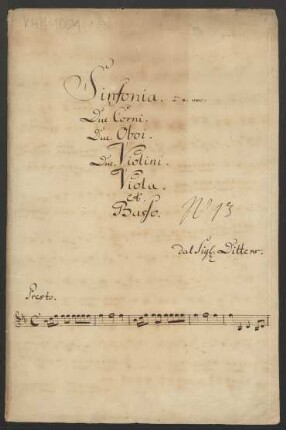 Sinfonia.
Due Corni.
Due Oboi.
Due Violini.
Viola.
et
Basso.
No 13
dal Sigl: Ditters.
Presto.